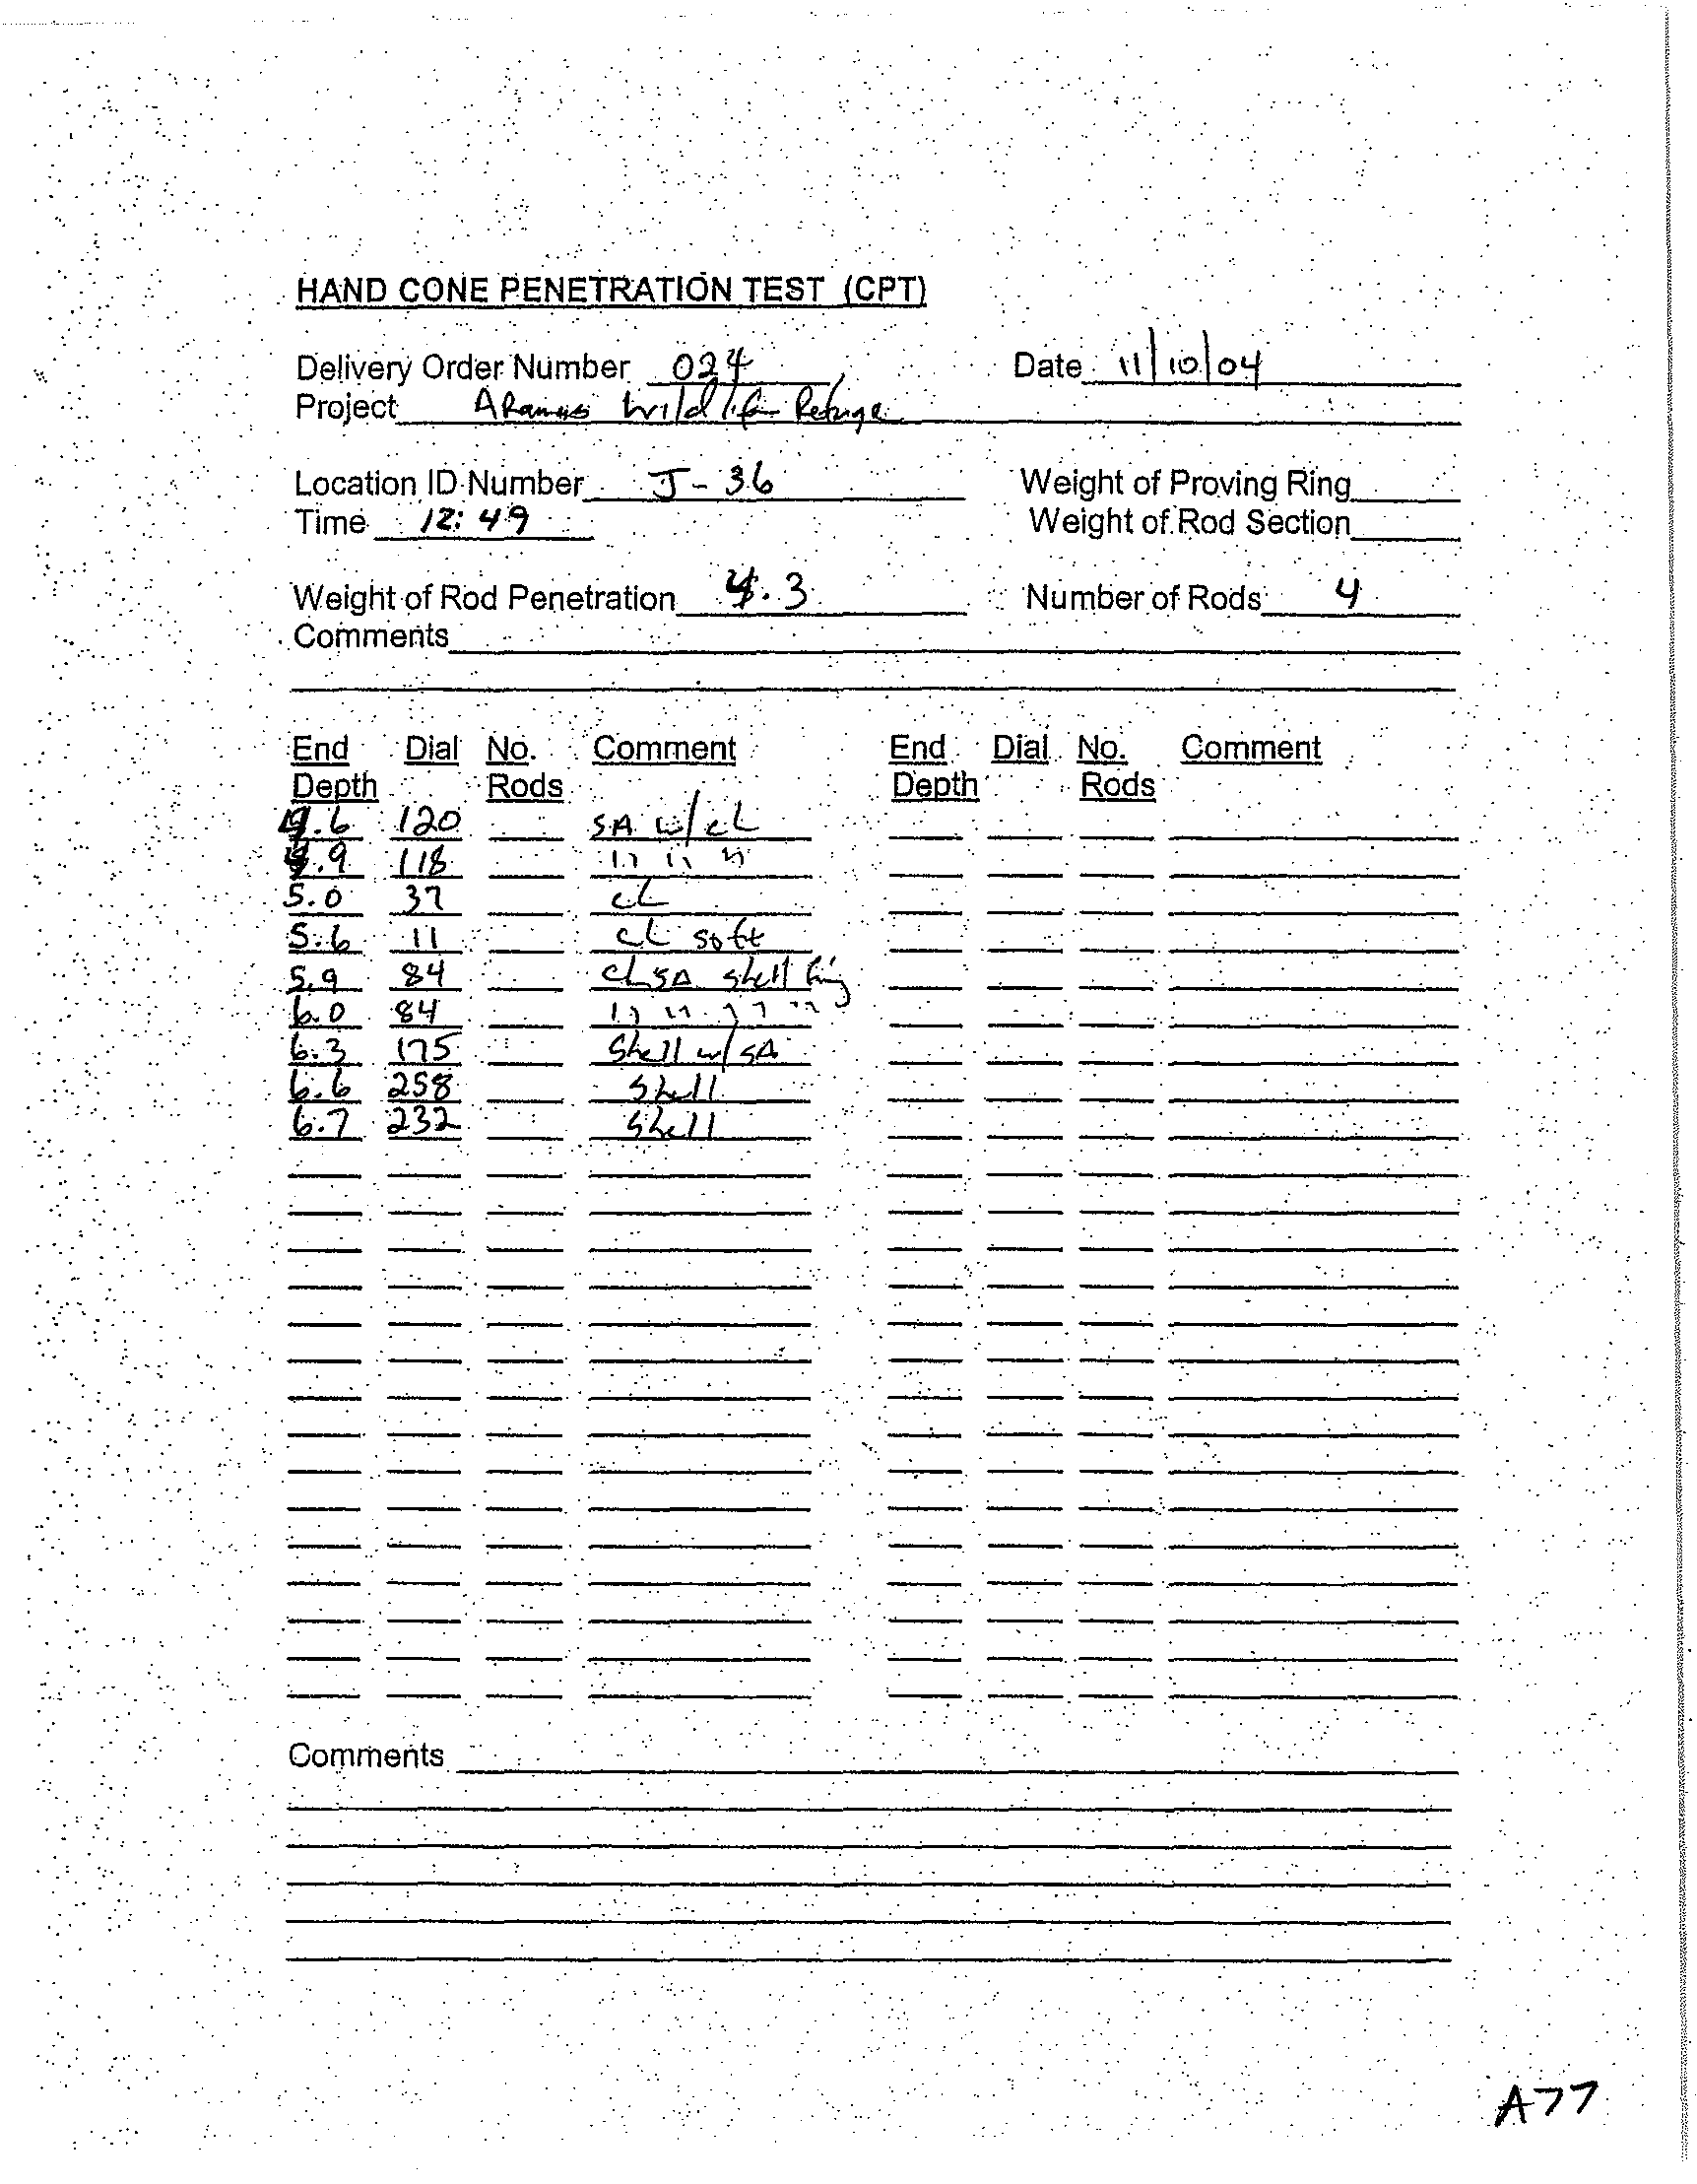 HAND CONE PENETRATION TEST (CPT)
Delivery Order Number 024 Date 11/10/04
Project Aransas Wildlife Refuge
Location ID Number J-36 Weight of Proving Ring
Time 12:49 Weight of Rod Section
Weight of Rod Penetration 4.3 Number of Rods 4
Comments
End Dial No. Comment End Dial No. Comment
Depth Rods Depth Rods
4.6 120 SA w/cL
4.9 118 " " "
5.0 37 cL
5.6 11 cL soft
5.9 84 cL SA shell
6.0 84 " " " "
6.3 175 Shell w/SA
6.6 258 Shell
6.7 232 Shell
Comments
A77